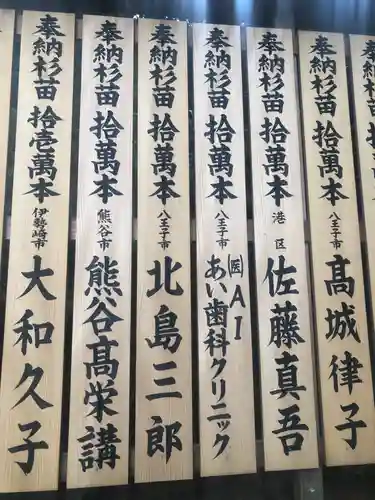 奉納杉苗 拾萬本 八王子市 髙城律子
奉納杉苗 拾萬本 港区 佐藤真吾
奉納杉苗 拾萬本 八王子市 医 AI あい歯科クリニック
奉納杉苗 拾萬本 八王子市 北島三郎
奉納杉苗 拾萬本 熊谷市 熊谷髙栄講
奉納杉苗 拾壱萬本 伊勢崎市 大和久子